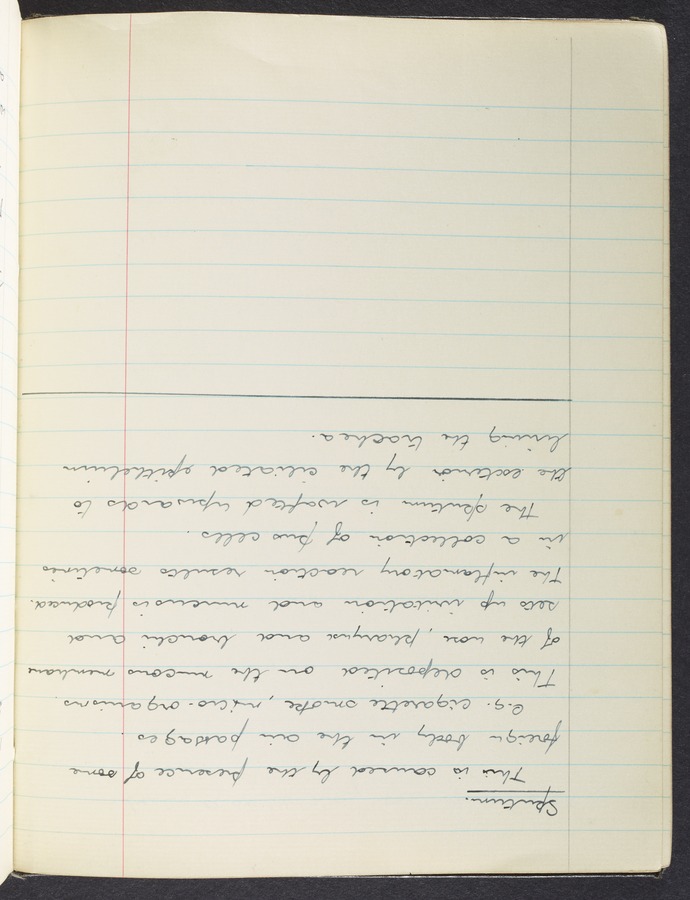 Sputum.
This is caused by the presence of some
foreign body in the air passages.
e.g. cigarette smoke, micro-organisms.
This is deposited on the mucous membrane
of the nose, pharynx and bronchi and
sets up irritation and mucus is produced.
The inflamatory reaction results sometimes
in a collection of pus cells.
The sputum is wafted upwards to
the exterior by the ciliated epithelium
lining the trachea.